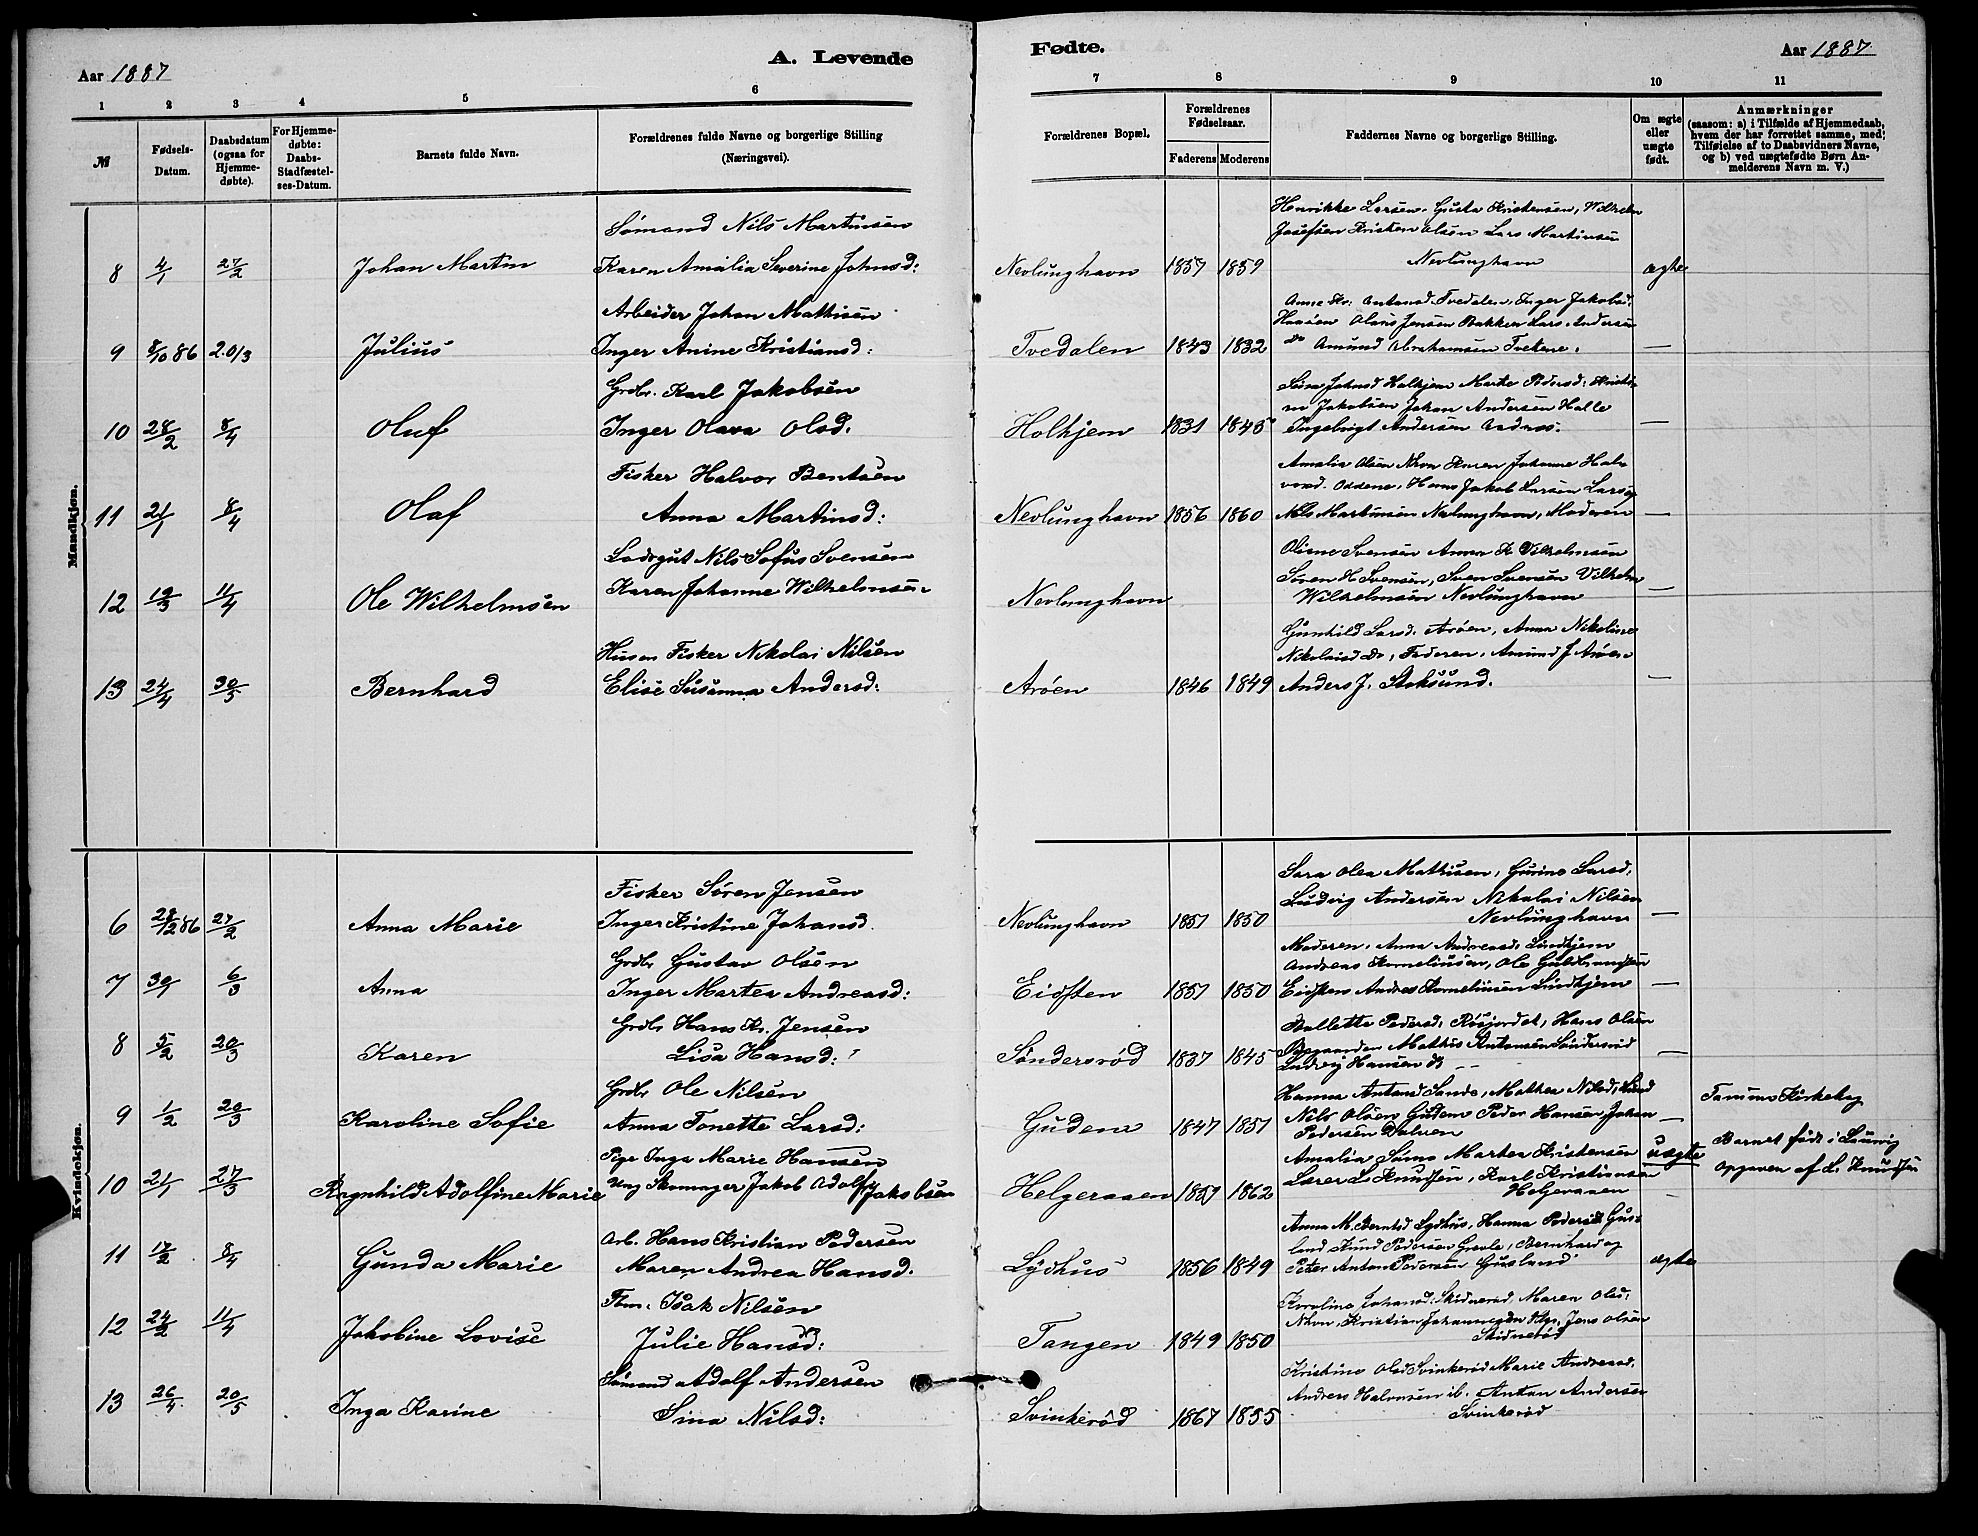 Aar 1887
A. Levende
Fødte.
Aar 1887
1 2 3 4 5 6 7 8 9 10 11
№
Fødsels-Datum.
Daabsdatum (ogsaa for Hjemme-døbte).
For Hjemme-døbte: Daabs-Stadfæstel-ses-Datum.
Barnets fulde Navn.
Forældrenes fulde Navne og borgerlige Stilling (Næringsvei).
Forældrenes Bopæl.
Forældrenes Fødselsaar.
Faderens Moderens
Faddernes Navne og borgerlige Stilling.
Om ægte eller uægte født.
Anmærkninger
(saasom: a) i Tilfælde af Hjemmedaab, hvem der har forrettet samme, med Tilføielse af to Daabsvidners Navne, og b) ved uægtefødte Børn An-melderens Navn m. V.)
Mandkjøn.
Sømand Nils Martinsen
Henrikke Larsen, Gusta Kristensen, Wilhelm
Josefsen Kristen Olsen Lars Martinsen
8 4/1 27/2 Johan Martin Karen Amalia Severine Johnsd: Nevlunghavn 1857 1859 Nevlunghavn ægte
Arbeider Johan Mathisen
Olaus Jensen Bakken Lars Andersen
9 8/10 86 20/3 Julius Inger Anine Kristiansd: Tvedalen 1843 1832 do Amund Abrahamsen Tvetene. —
Grdbr. Karl Jakobsen
Jakobsen Johan Andersen Halle
10 28/2 8/4 Oluf Inger Olava Olsd. Holkjem 1831 1845 Ingebrigt Andersen —
Fisker Halvor Bentsen
Amalia Olsen Nhvn Karen Johanne Hal-
vorsd. Oddene, Hans Jakob Larsen Lars og
11 21/1 8/4 Olaf Anna Martinsd: Nevlunghavn 1856 1860 Nils Martinsen Nevlunghavn, Moderen —
Lodsgut Nils Sofus Svensen
Oline Svensen Anna K Vilhelmsen
Søren H Svensen, Sven Svensen Vilhelm
12 19/3 11/4 Ole Wilhelmsen Karen Johanne Wilhelmsen Nevlunghavn Wilhelmsen Nevlunghavn —
Husm Fisker Nikolai Nilsen
Gunhild Larsd. Arøen, Anna Nikoline
Nikolaisd Do, Faderen, Amund J Arøen
13 24/4 30/5 Bernhard Elise Susanna Andersd: Arøen 1846 1849 Anders J. Stoksund. —
Kvindekjøn.
Fisker Søren Jensen
Sara Olea Mathisen, Gurine Larsd,
Ludvig Andersen Nikolai Nilsen
6 28/12 86 27/2 Anna Marie Inger Kristine Johansd. Nevlunghavn 1851 1850 Nevlunghavn —
Grdbr Gustav Olsen
Moderen, Anna Andreasd. Lindhjem
Andreas Korneliussen, Ole Guldbrandsen
7 30/1 6/3 Anna Inger Martea Andreasd: Eidsten 1851 1850 Eidsten Andreas Korneliussen Lindhjem —
Grdbr Hans Kr. Jensen
Pedersd. Røsjordet, Hans Olsen
8 5/2 20/3 Karen Lisa Hansd: Søndersrød 1837 1845 Mathis Antonsen Søndersrød —
Ludvig Hansen do
Grdbr Ole Nilsen
Hanna Antonsd Sande, Mathea Nilsd. Lund
9 1/2 20/3 Karoline Sofie Anna Tonette Larsd: Gudem 1847 1851 Nils Olsen Gudem Peder Hansen, Johan — Tanum Kirkebog
Pedersen Dolven
Pige Inga Marie Hansen
Amalia Marten Kristensen
10 21/1 27/3 Ragnhild Adolfine Marie Ung Skomager Jakob Adolf Jakobsen Helgeraaen 1857 1862 Lærer L. Knudsen, Karl Kristiansen uægte Barnet født i Laurvig
Helgeraaen opgaven af L. Knudsen
Arb. Hans Kristian Pedersen
Anna M. Berntsd Lydhus, Hanna Pedersd Gus-
land Knud Pedersen Grevle, Bernhard og
11 17/2 8/4 Gunda Marie Maren Andrea Hansd. Lydhus 1856 1849 Peter Anton Pedersen Gusland ægte
Tøm. Isak Nilsen
Karoline Johansd. Skidnerød, Maren Olsd.
12 24/2 11/4 Jakobine Lovise Julie Hansd: Tangen 1849 1850 Nhvn, Kristian Johannesen Jens Olsen
Skidnerød
Sømand Adolf Andersen
Kristine Olsd Svinkerød Marie Andreasd.
Anders Halvorsen ib. Anton Andersen
13 26/4 20/5 Inga Karine Sina Nilsd: Svinkerød 1867 1855 Svinkerød